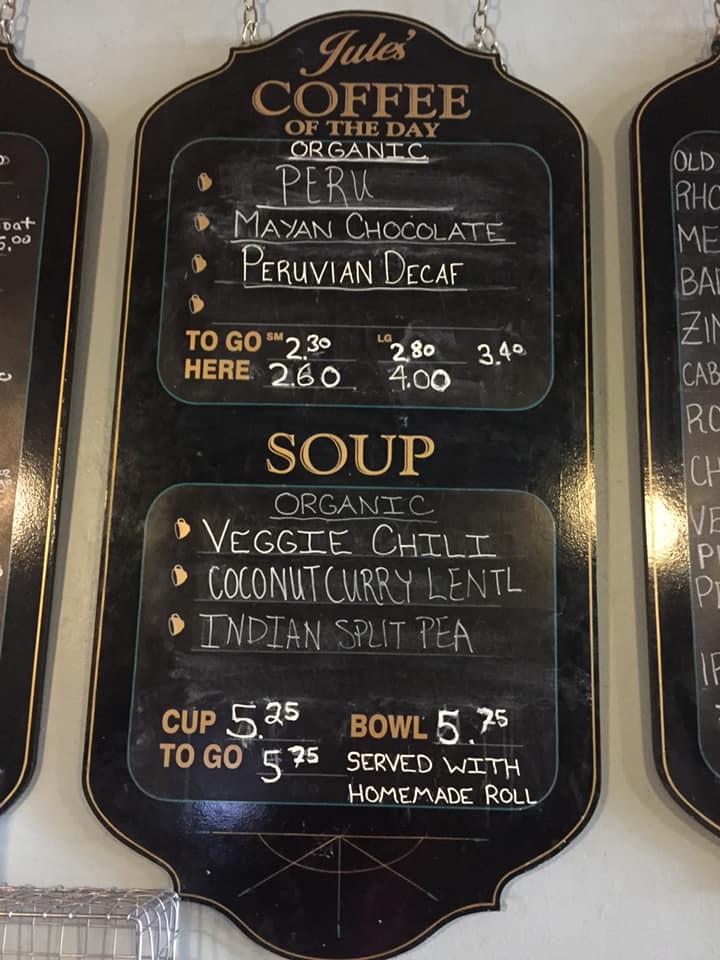 Jules'
COFFEE
OF THE DAY
ORGANIC
PERU
MAYAN CHOCOLATE
PERUVIAN DECAF
TO GO SM 2.30 LG 2.80 3.40
HERE 2.60 4.00
SOUP
ORGANIC
VEGGIE CHILI
COCONUT CURRY LENTL
INDIAN SPLIT PEA
CUP 5.25 BOWL 5.75
TO GO 5.75 SERVED WITH
HOMEMADE ROLL
OLD